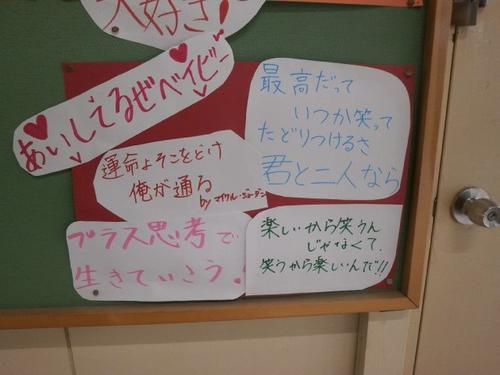 大好き!
あいしてるぜベイビー
最高だって
いつか笑って
たどりつけるさ
君と二人なら
運命よそこをどけ
俺が通る
by マイケル・ジョーダン
プラス思考で
生きていこう!
楽しいから笑うん
じゃなくて、
笑うから楽しいんだ!!